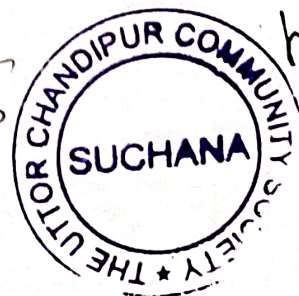 THE UTTOR CHANDIPUR COMMUNITY SOCIETY ★
SUCHANA